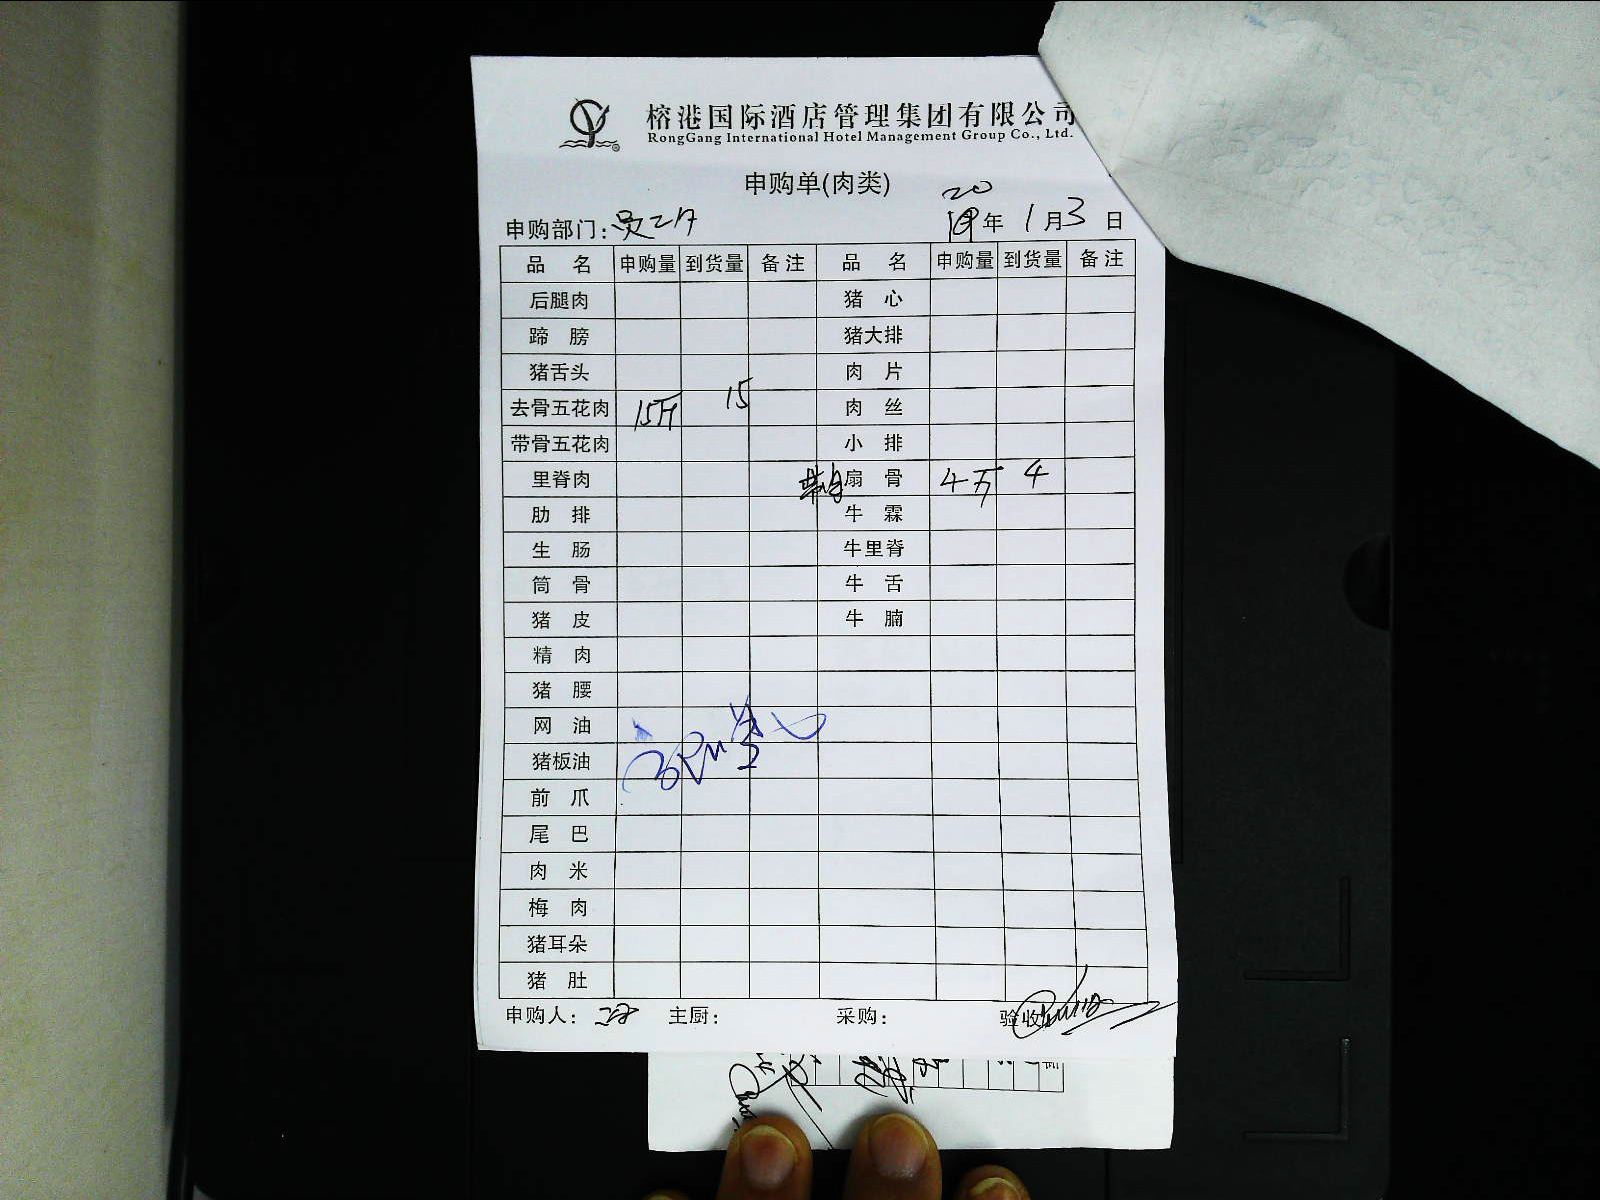 榕港国际酒店管理集团有限公司
RongGang International Hotel Management Group Co., Ltd.
申购单(肉类)
20
申购部门: 年 1 月 3 日
品 名 申购量 到货量 备注 品 名 申购量 到货量 备注
后腿肉 猪 心
蹄 膀 猪大排
猪舌头 肉 片
去骨五花肉 15斤 15 肉 丝
带骨五花肉 小 排
里脊肉 带肉扇 骨 4斤 4
肋 排 牛 霖
生 肠 牛里脊
筒 骨 牛 舌
猪 皮 牛 腩
精 肉
猪 腰
网 油
猪板油
前 爪
尾 巴
肉 米
梅 肉
猪耳朵
猪 肚
申购人: 主厨: 采购: 验收